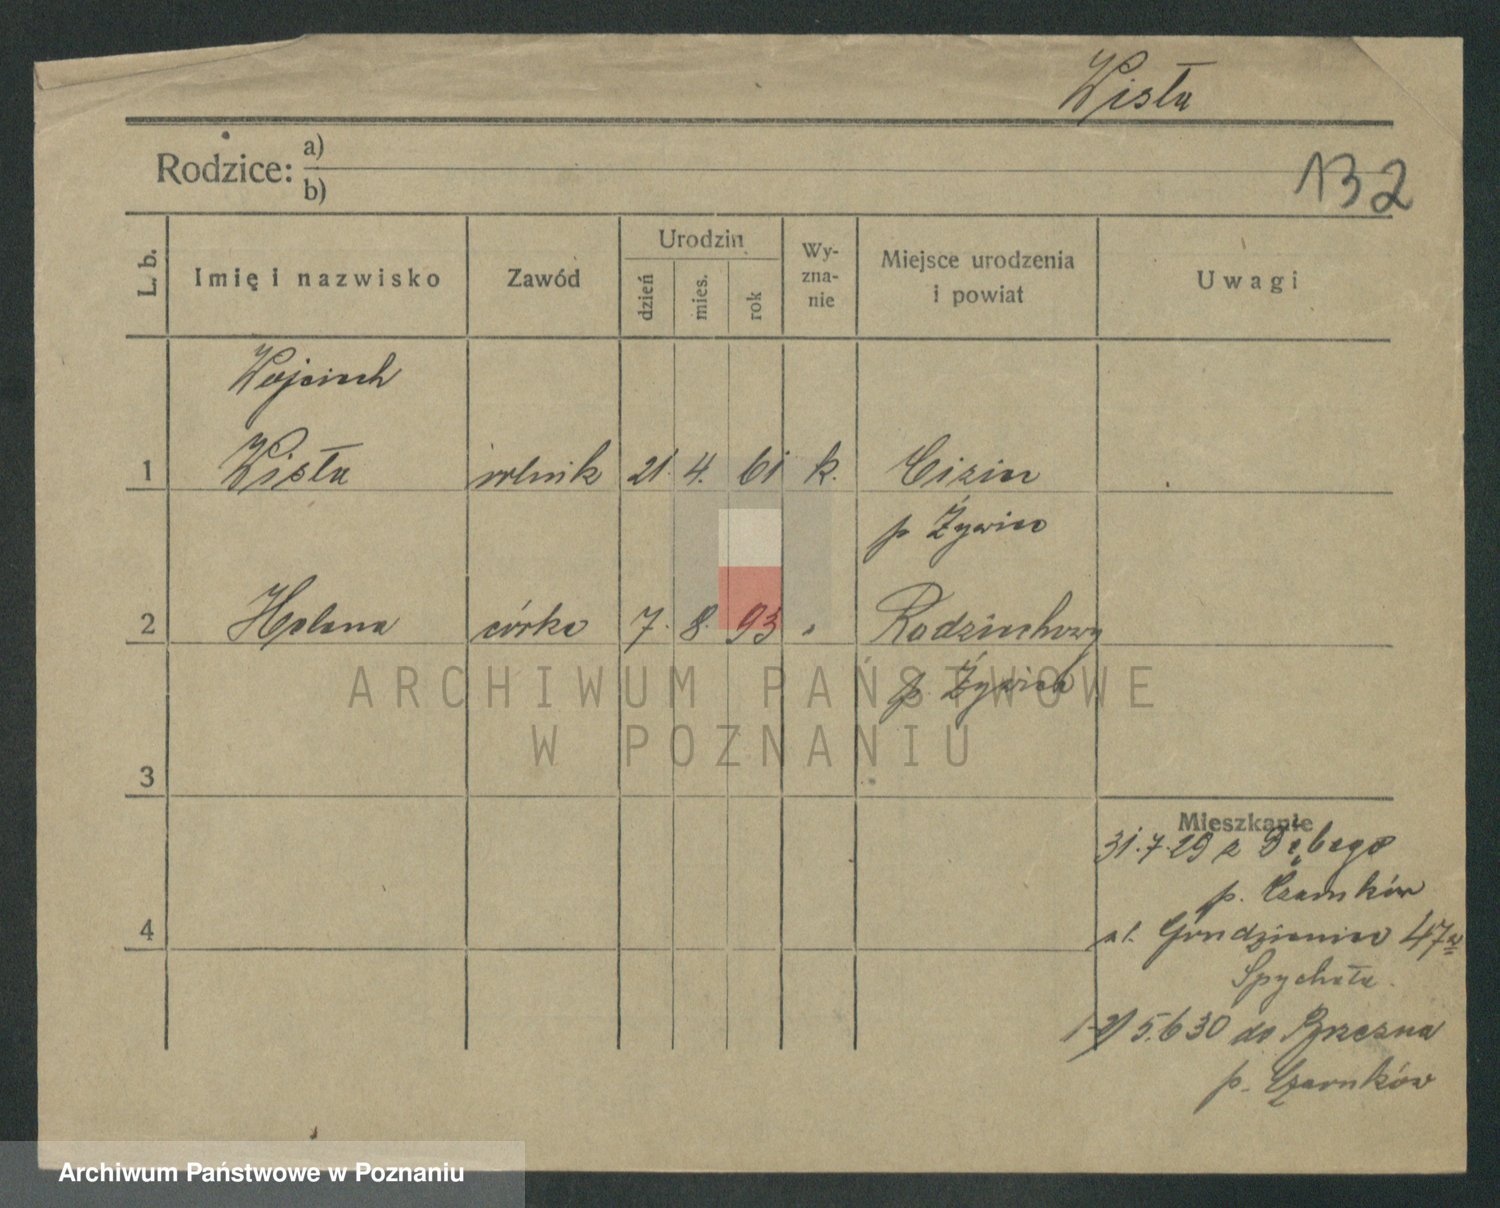 Wisła
Rodzice: a)
b)
132
L. b.
Imię i nazwisko
Zawód
Urodzin
dzień
mies.
rok
Wy-
zna-
nie
Miejsce urodzenia
i powiat
Uwagi
Wojciech
1 Wisła rolnik 21. 4. 61 k. Cisiec
p Żywiec
2 Helena córka 7. 8. 93 "
p. Żywiec
3
4
Mieszkanie
31.7.29 z Dębego
p. Czarnków
ul. Grudzieniec 47a
Spychała.
1-2) 5.6 30 do
p. Czarnków
ARCHIWUM PAŃSTWOWE
W POZNANIU
Archiwum Państwowe w Poznaniu